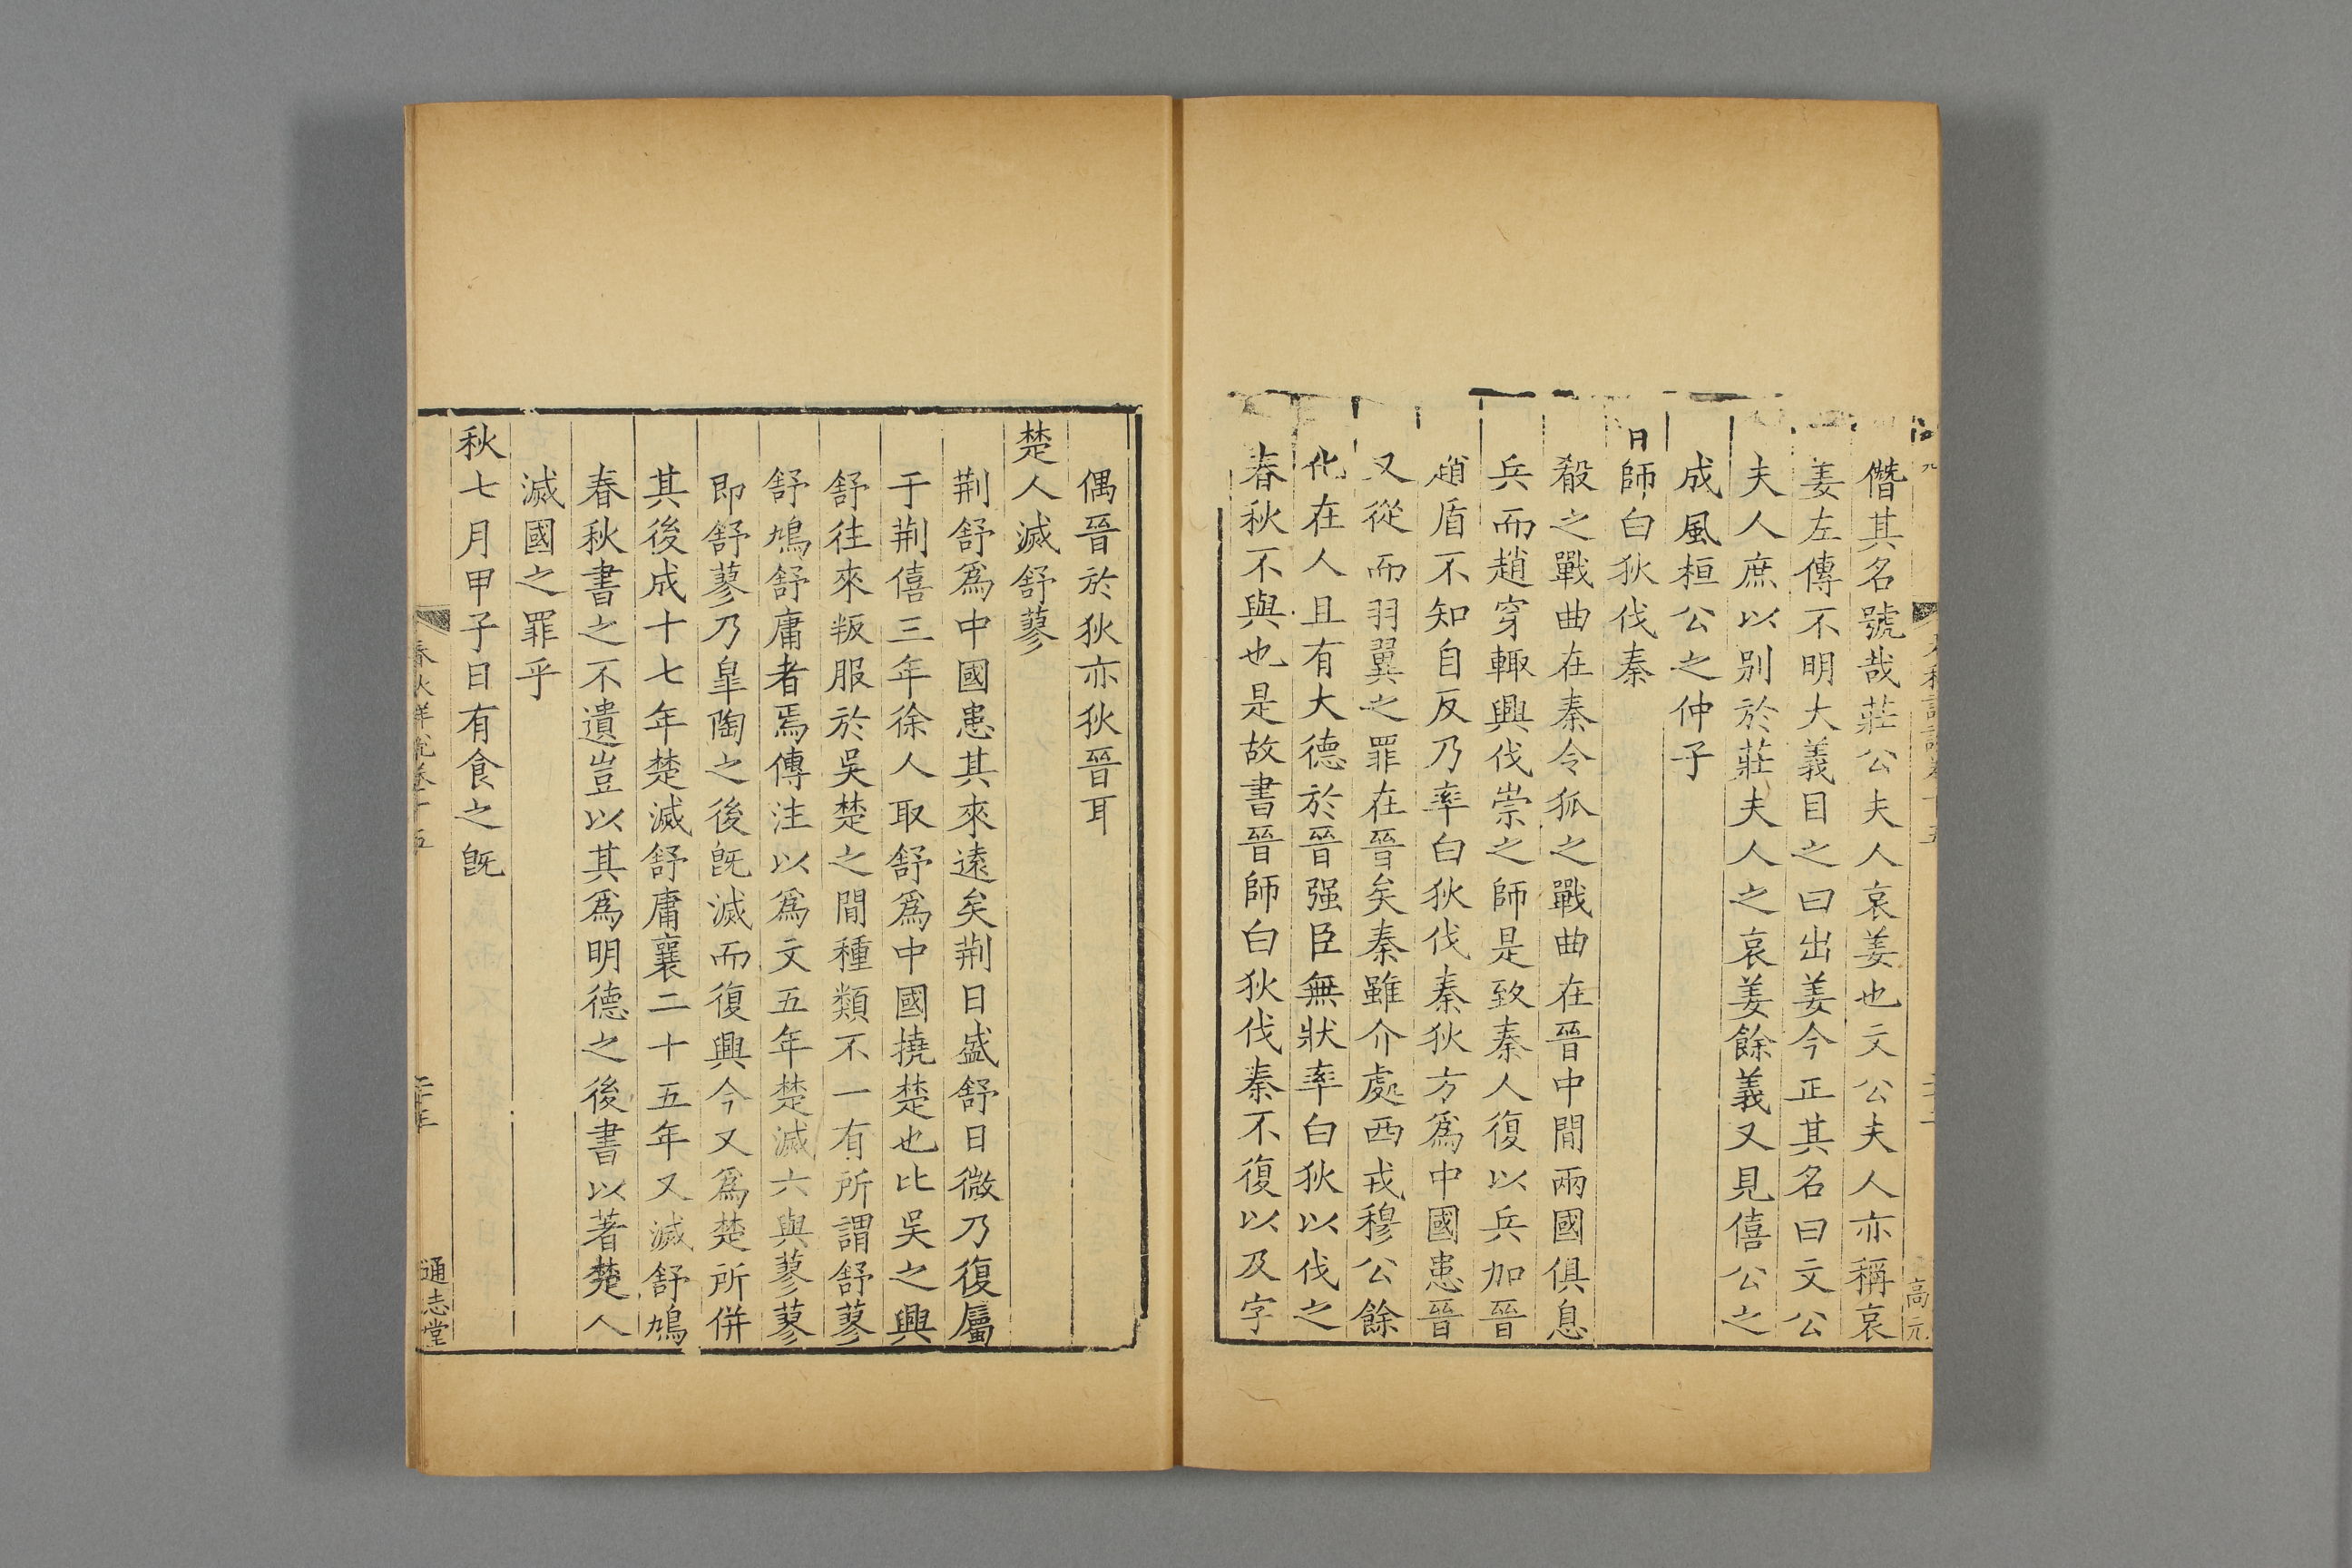 僭其名號哉莊公夫人哀姜也文公夫人亦稱哀
姜左傳不明大義目之曰出姜今正其名曰文公
夫人庶以别於莊夫人之哀姜餘義又見僖公之
成風桓公之仲子
師白狄伐秦
殽之戰曲在秦令狐之戰曲在晉中間兩國俱息
兵而趙穿輙興伐崇之師是致秦人復以兵加晉
趙盾不知自反乃率白狄伐秦狄方爲中國患晉
又從而羽翼之罪在晉矣秦雖介處西戎穆公餘
化在人且有大德於晉强臣無狀率白狄以伐之
春秋不與也是故書晉師白狄伐秦不復以及字
高元
偶晉於狄亦狄晉耳
楚人滅舒蓼
荆舒爲中國患其來遠矣荆日盛舒日微乃復屬
于荆僖三年徐人取舒爲中國撓楚也比吳之興
舒往來叛服於吳楚之間種類不一有所謂舒蓼
舒鳩舒庸者焉傳注以爲文五年楚滅六與蓼蓼
即舒蓼乃臯陶之後旣滅而復興今又爲楚所併
其後成十七年楚滅舒庸襄二十五年又滅舒鳩
春秋書之不遺豈以其爲明德之後書以著楚人
滅國之罪乎
秋七月甲子日有食之旣
春秋詳說卷十五
通志堂